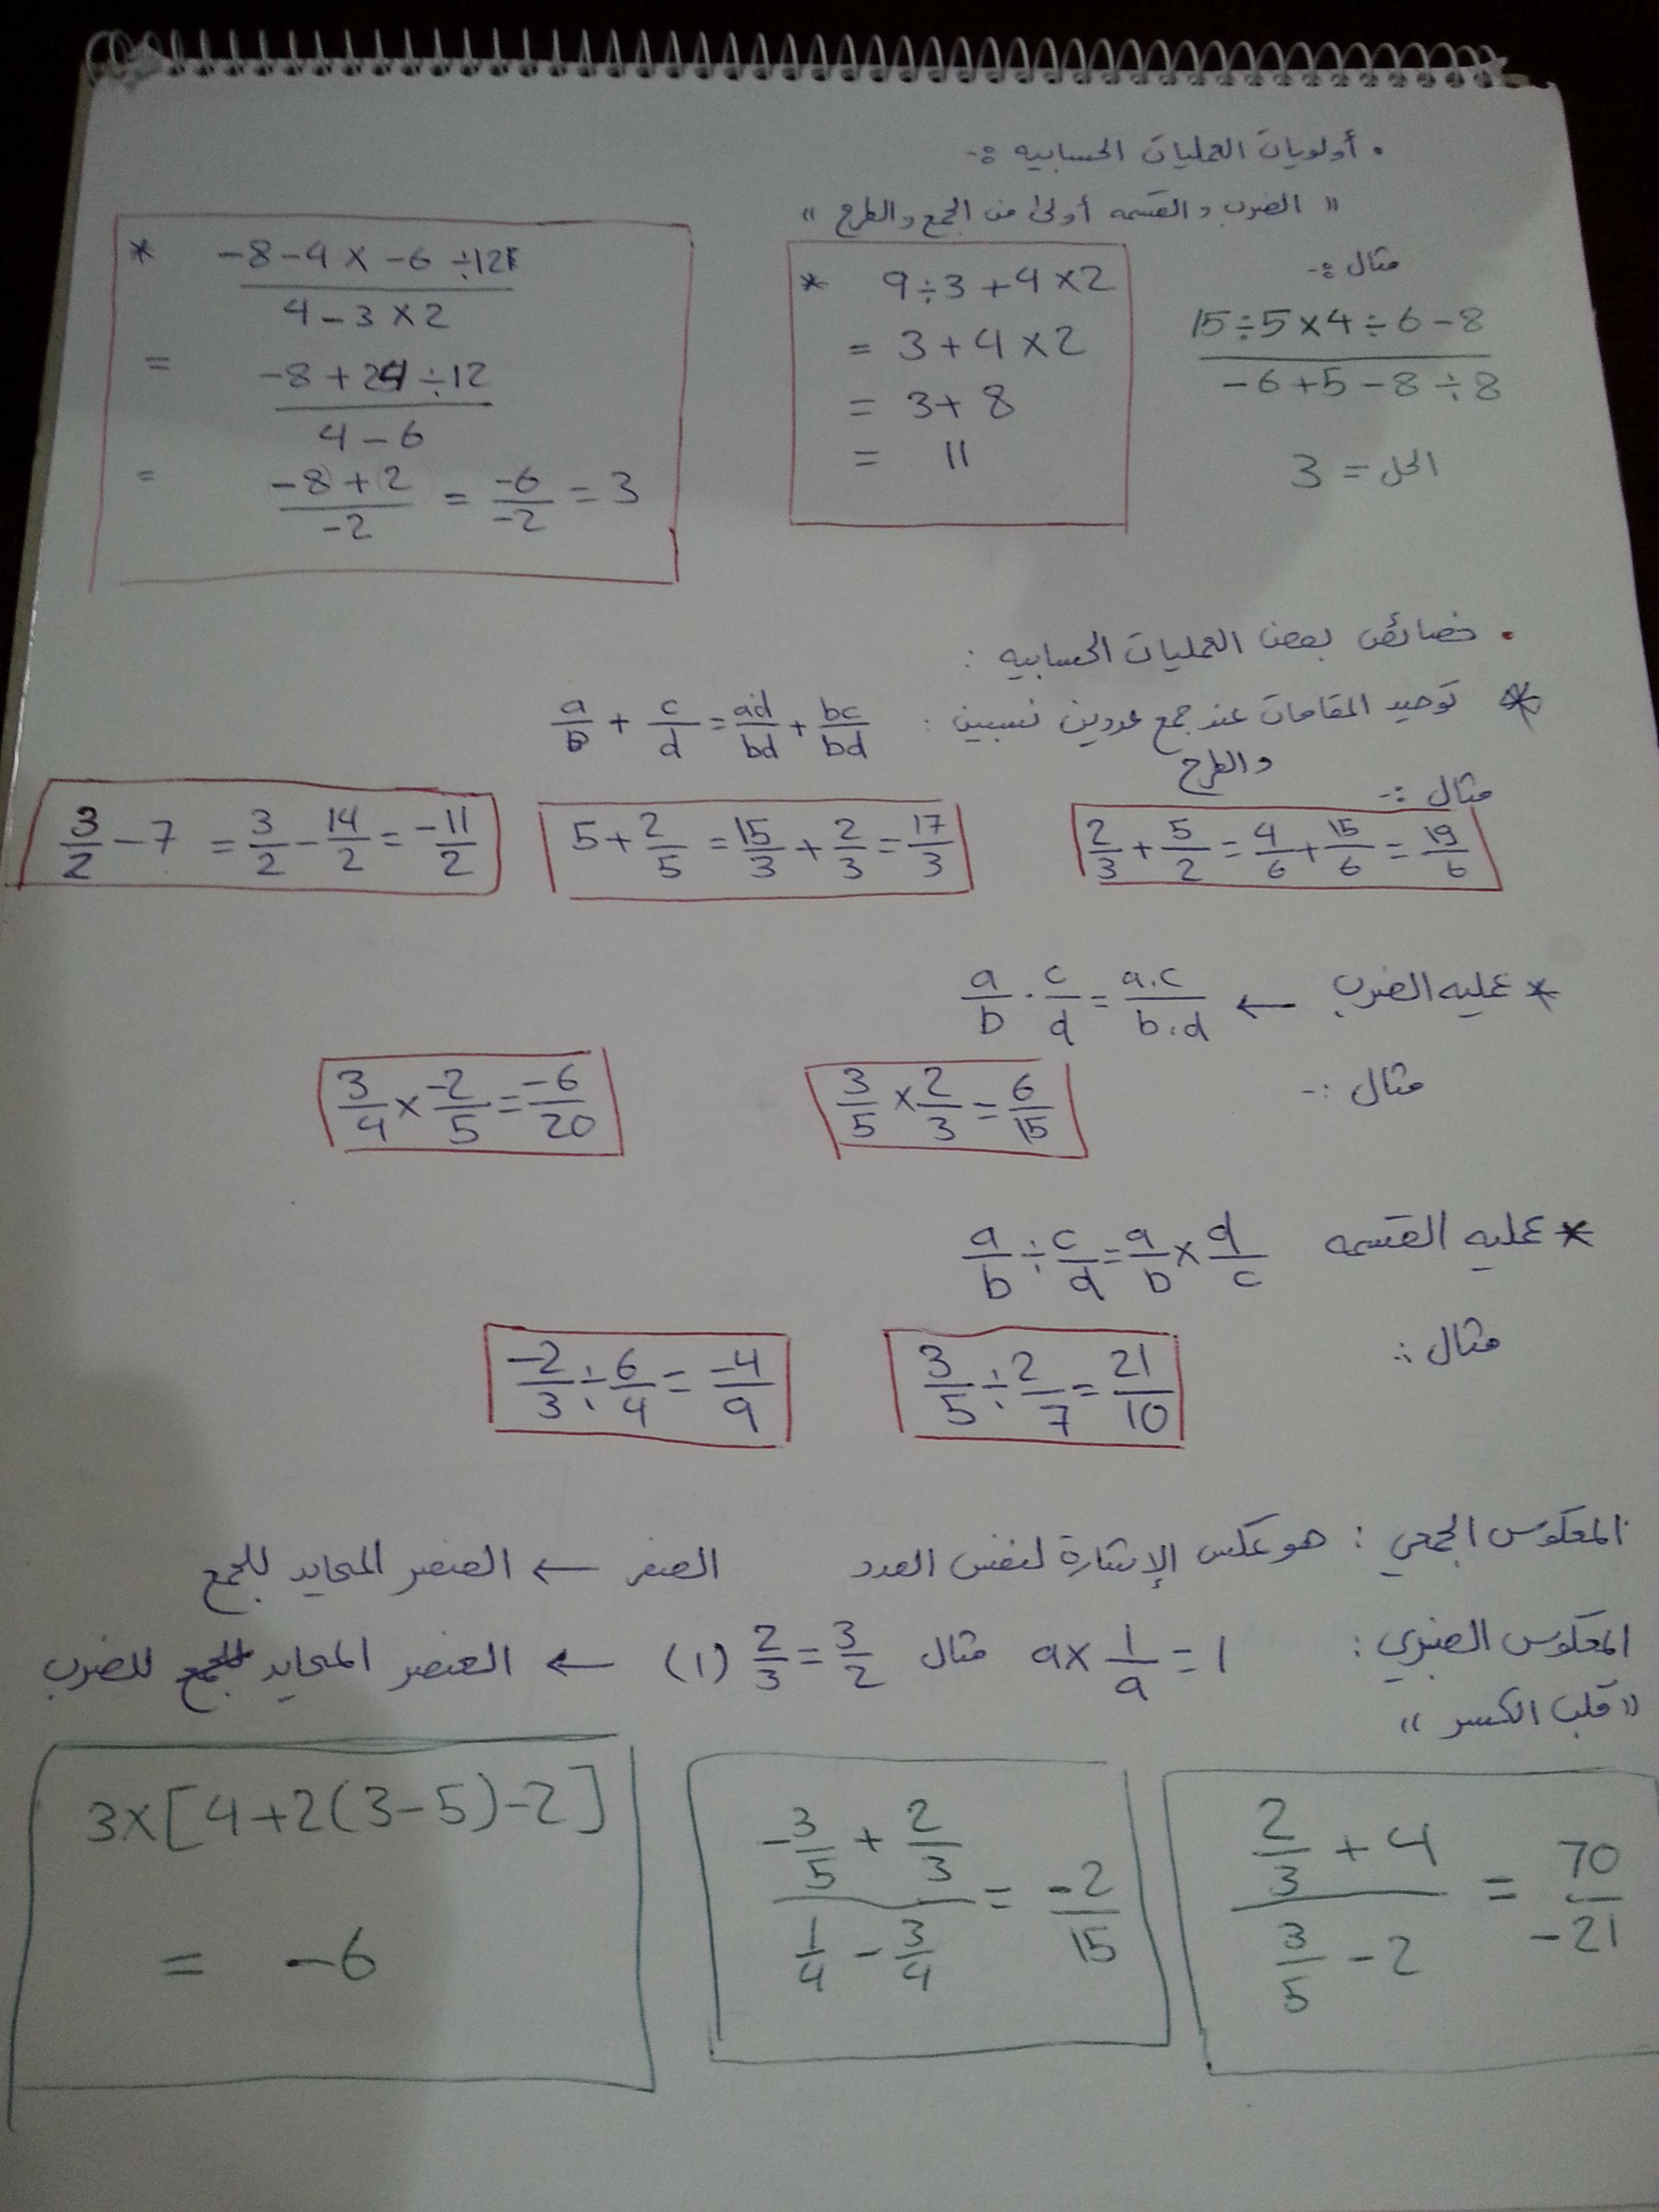 • أولويات العمليات الحسابيه :-
" الضرب والقسمه أولى من الجمع والطرح "
مثال :-
15÷5×4÷6-8 / -6+5-8÷8
الحل = 3
* 9÷3+4×2
= 3+4×2
= 3+8
= 11
* -8-4×-6÷12 / 4-3×2
= -8+24÷12 / 4-6
= -8+2 / -2 = -6/-2 = 3
• خصائص بعض العمليات الحسابيه :
* توحيد المقامات عند جمع عددين نسبيين : a/b + c/d = ad/bd + bc/bd
والطرح
مثال :-
2/3 + 5/2 = 4/6 + 15/6 = 19/6
5 + 2/5 = 15/3 + 2/3 = 17/3
3/2 - 7 = 3/2 - 14/2 = -11/2
* عمليه الضرب ← a/b . c/d = a.c/b.d
مثال :-
3/5 × 2/3 = 6/15
3/4 × -2/5 = -6/20
* عمليه القسمه a/b ÷ c/d = a/b × d/c
مثال :.
3/5 ÷ 2/7 = 21/10
-2/3 ÷ 6/4 = -4/9
المعكوس الجمعي : هو عكس الإشارة لنفس العدد الصفر ← العنصر المحايد للجمع
المعكوس الضربي : a × 1/a = 1 مثال 2/3 = 3/2 (1) ← العنصر المحايد للجمع للضرب
" قلب الكسر "
2/3 + 4 / 3/5 - 2 = 70/-21
-3/5 + 2/3 / 1/4 - 3/4 = -2/15
3×[4+2(3-5)-2]
= -6